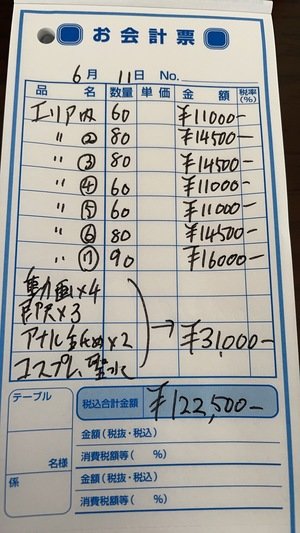 お会計票
6月 11日 No.
品名 数量 単価 金額 税率(%)
エリア内 60 ¥11000-
〃 ② 80 ¥14500-
〃 ③ 80 ¥14500-
〃 ④ 60 ¥11000-
〃 ⑤ 60 ¥11000-
〃 ⑥ 80 ¥14500-
〃 ⑦ 90 ¥16000-
動画×4
即尺×3
アナル舐め×2 → ¥31,000-
コスプレ、聖水
テーブル
税込合計金額 ¥122,500-
金額(税抜・税込)
名様 消費税額等( %)
係 金額(税抜・税込)
消費税額等( %)